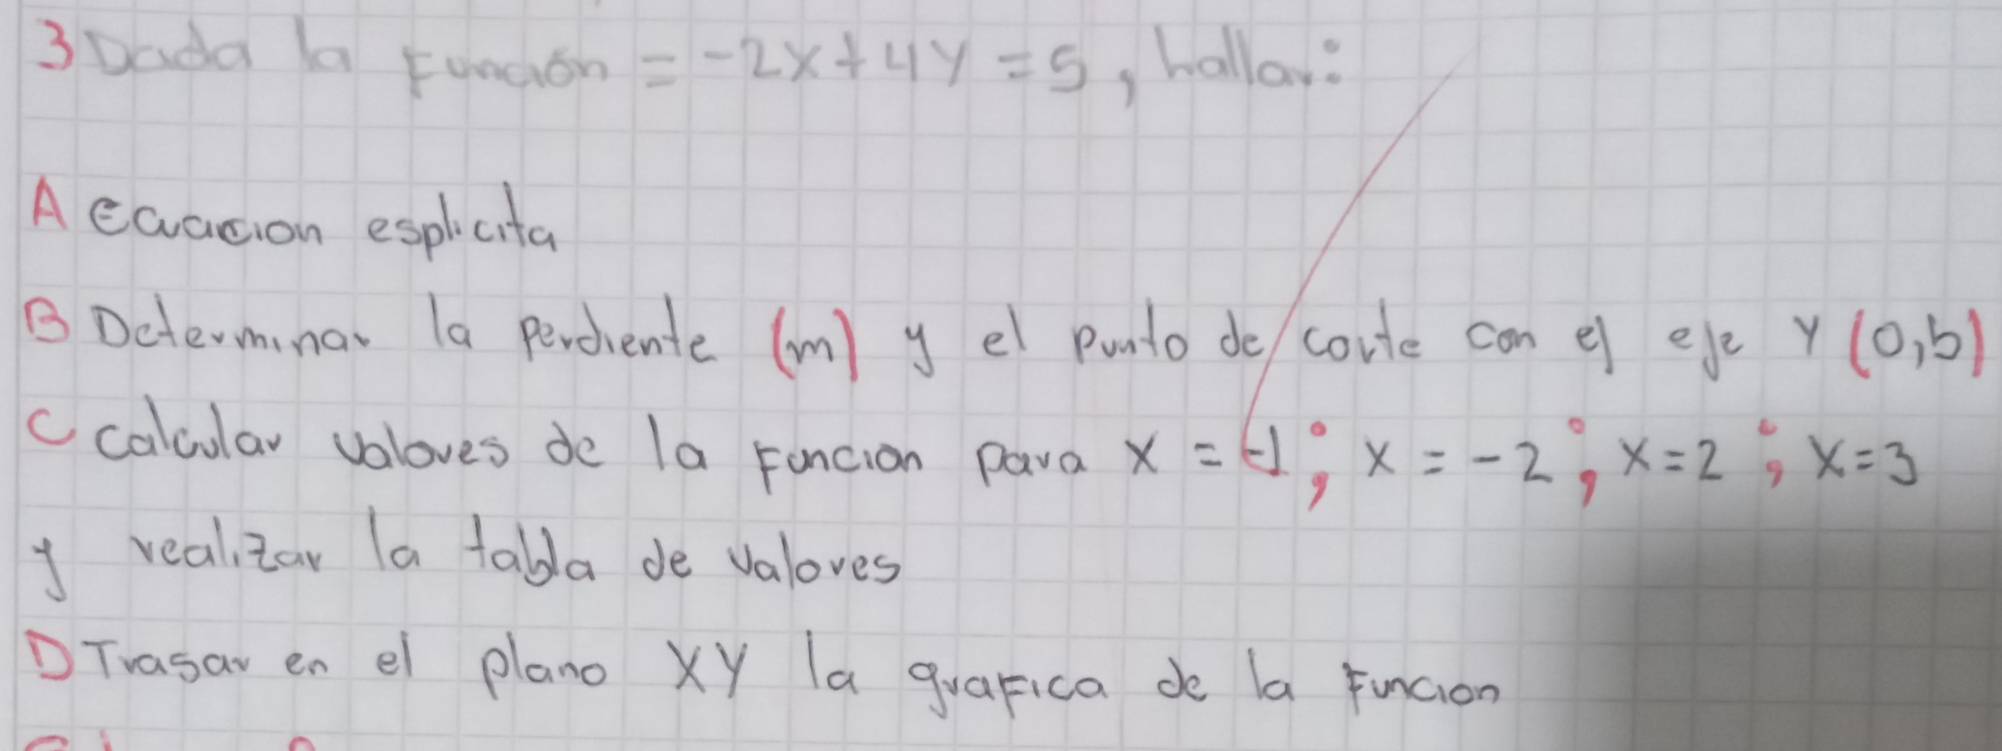 3 Dada la Función = -2x+4y=5, hallar:
A Ecuacion esplicita
B Determinar la pendiente (m) y el punto de corte con el eje y (0,b)
C calcular valores de la Funcion para x = -1; x = -2; x=2; x=3
y realizar la tabla de valores
D Trasar en el plano XY la grafica de la Funcion